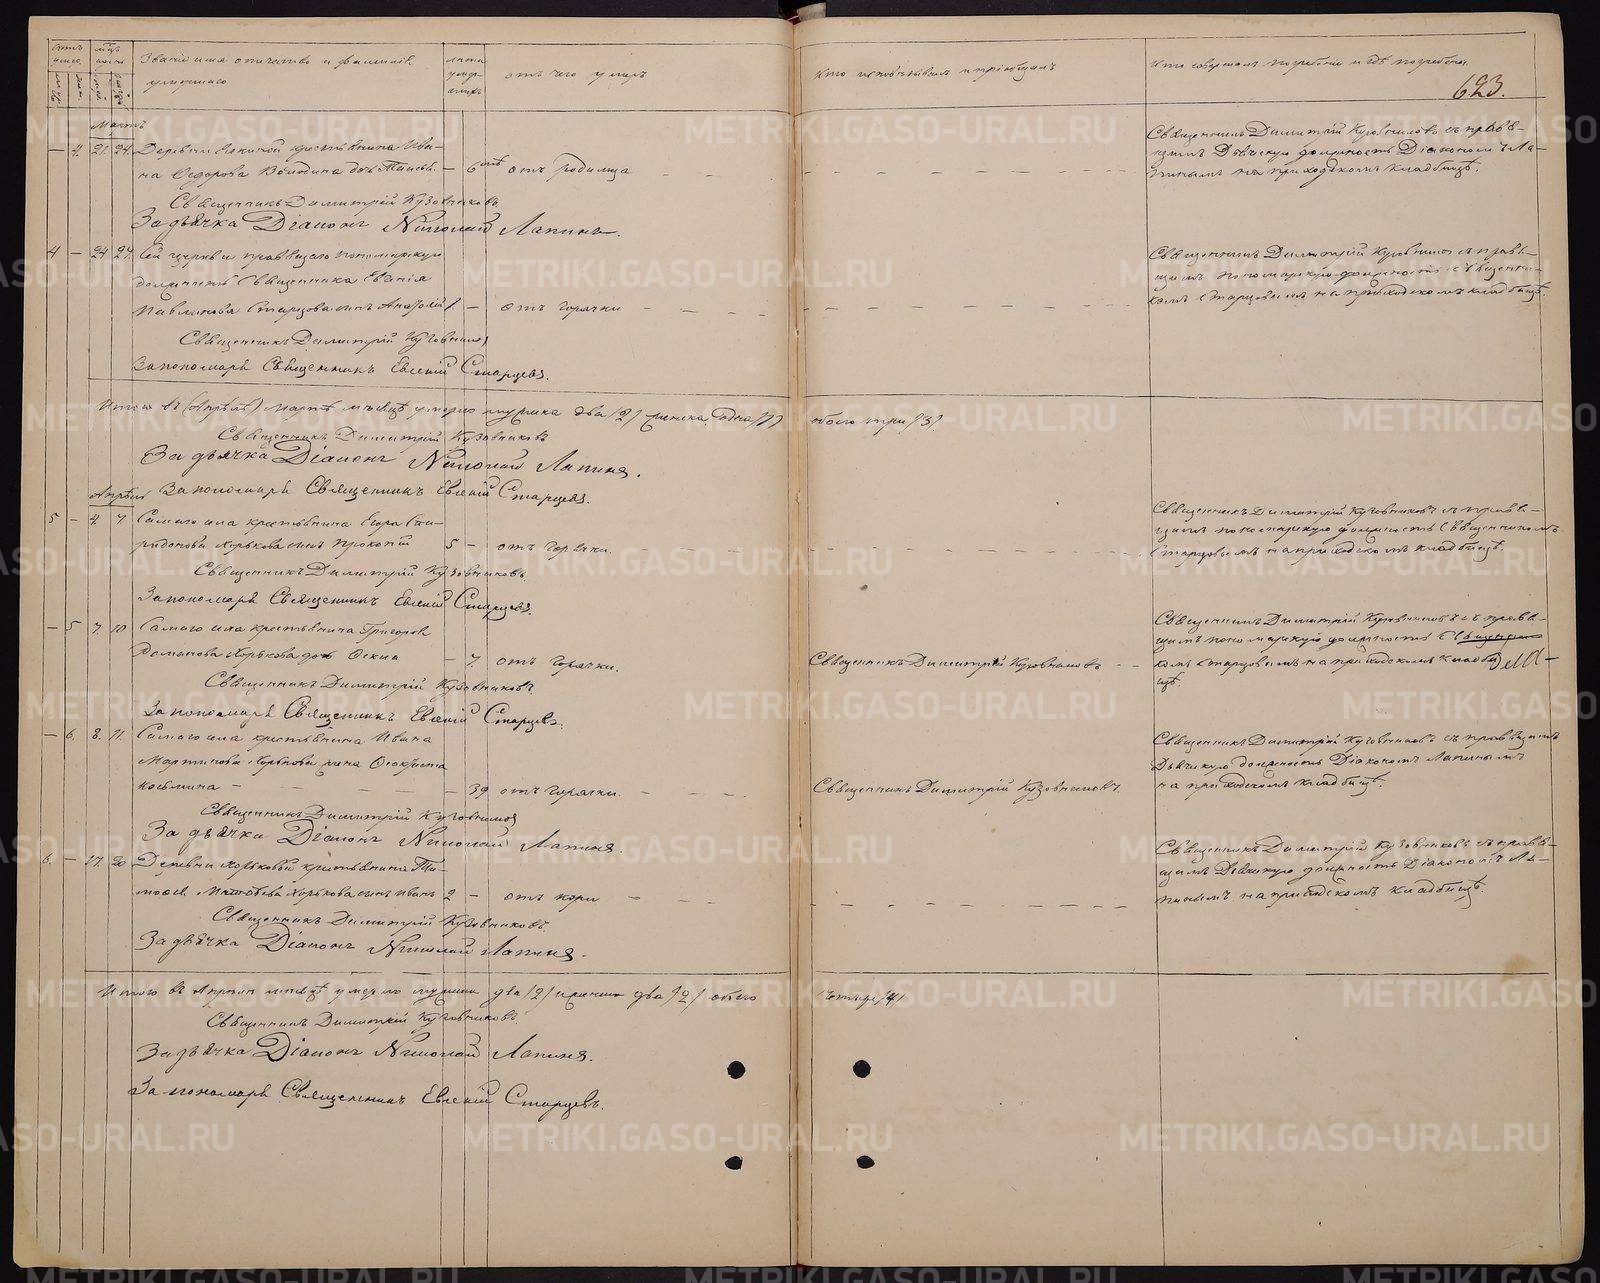 Званіе имя отчество и фамилія
умершаго
лѣта
отъ чего умеръ
Кто исповѣдывалъ и пріобщалъ
Кто совершалъ погребеніе и гдѣ погребены
623.
Мартъ
— 4. 21. 24. Деревни крестьянина
на Ѳедорова дочь — 6 отъ родимца
Священникъ Димитрій Кузовниковъ
За дьячка Діаконъ Николай Лапинъ.
Священникъ Димитрій Кузовниковъ съ правя-
щимъ Дьячкую должность Діакономъ Ла-
пинымъ на приходскомъ кладбищѣ.
4 — 24 27. Сей церкви правящаго пономарскую
должность Священника Евгенія
Павлинова Старцова сынъ Анатолій 1. — отъ горячки
Священникъ Димитрій Кузовниковъ
За пономаря Священникъ Евгеній Старцевъ.
Священникъ Димитрій Кузовниковъ съ правя-
щимъ пономарскую должность Священни-
комъ Старцовымъ на приходскомъ кладбищѣ.
Итого въ (Апрѣлѣ) Мартѣ мѣсяцѣ умерло мужска два /2/ женска одна /1/ обоего три /3/.
Священникъ Димитрій Кузовниковъ
За дьячка Діаконъ Николай Лапинъ.
За пономаря Священникъ Евгеній Старцевъ.
Апрѣль
5 — 4. 7. Самаго села крестьянина Егора Спи-
ридонова Хорькова сынъ Прокопій 5 — отъ горячки.
Священникъ Димитрій Кузовниковъ
За пономаря Священникъ Евгеній Старцевъ.
Священникъ Димитрій Кузовниковъ съ правя-
щимъ пономарскую должность Священникомъ
Старцовымъ на приходскомъ кладбищѣ.
— 5 7. 10 Самаго села крестьянина Григорія
Домланова Хорькова дочь — 7. отъ горячки.
Священникъ Димитрій Кузовниковъ
За пономаря Священникъ Евгеній Старцевъ.
Священникъ Димитрій Кузовниковъ
Священникъ Димитрій Кузовниковъ съ правя-
щимъ пономарскую должность Священни-
комъ Старцовымъ на приходскомъ кладби-
щѣ.
— 6. 8. 11. Самаго села крестьянина Ивана
Мартинова Хорькова жена Ѳеоктиста
Косьмина — — 39 отъ горячки.
Священникъ Димитрій Кузовниковъ
За дьячка Діаконъ Николай Лапинъ.
Священникъ Димитрій Кузовниковъ.
Священникъ Димитрій Кузовниковъ съ правящимъ
Дьячкую должность Діакономъ Лапинымъ
на приходскомъ кладбищѣ.
6. — 17. 20 Деревни Хорьковой крестьянина Ти-
моѳея Хорькова сынъ Иванъ 2 — отъ кори
Священникъ Димитрій Кузовниковъ
За дьячка Діаконъ Николай Лапинъ.
Священникъ Димитрій Кузовниковъ съ правя-
щимъ Дьячкую должность Діакономъ Ла-
пинымъ на приходскомъ кладбищѣ.
Итого въ Апрѣлѣ мѣсяцѣ умерло мужска два /2/ женска два /2/ обоего четыре /4/
Священникъ Димитрій Кузовниковъ
За дьячка Діаконъ Николай Лапинъ.
За пономаря Священникъ Евгеній Старцевъ.
METRIKI.GASO-URAL.RU